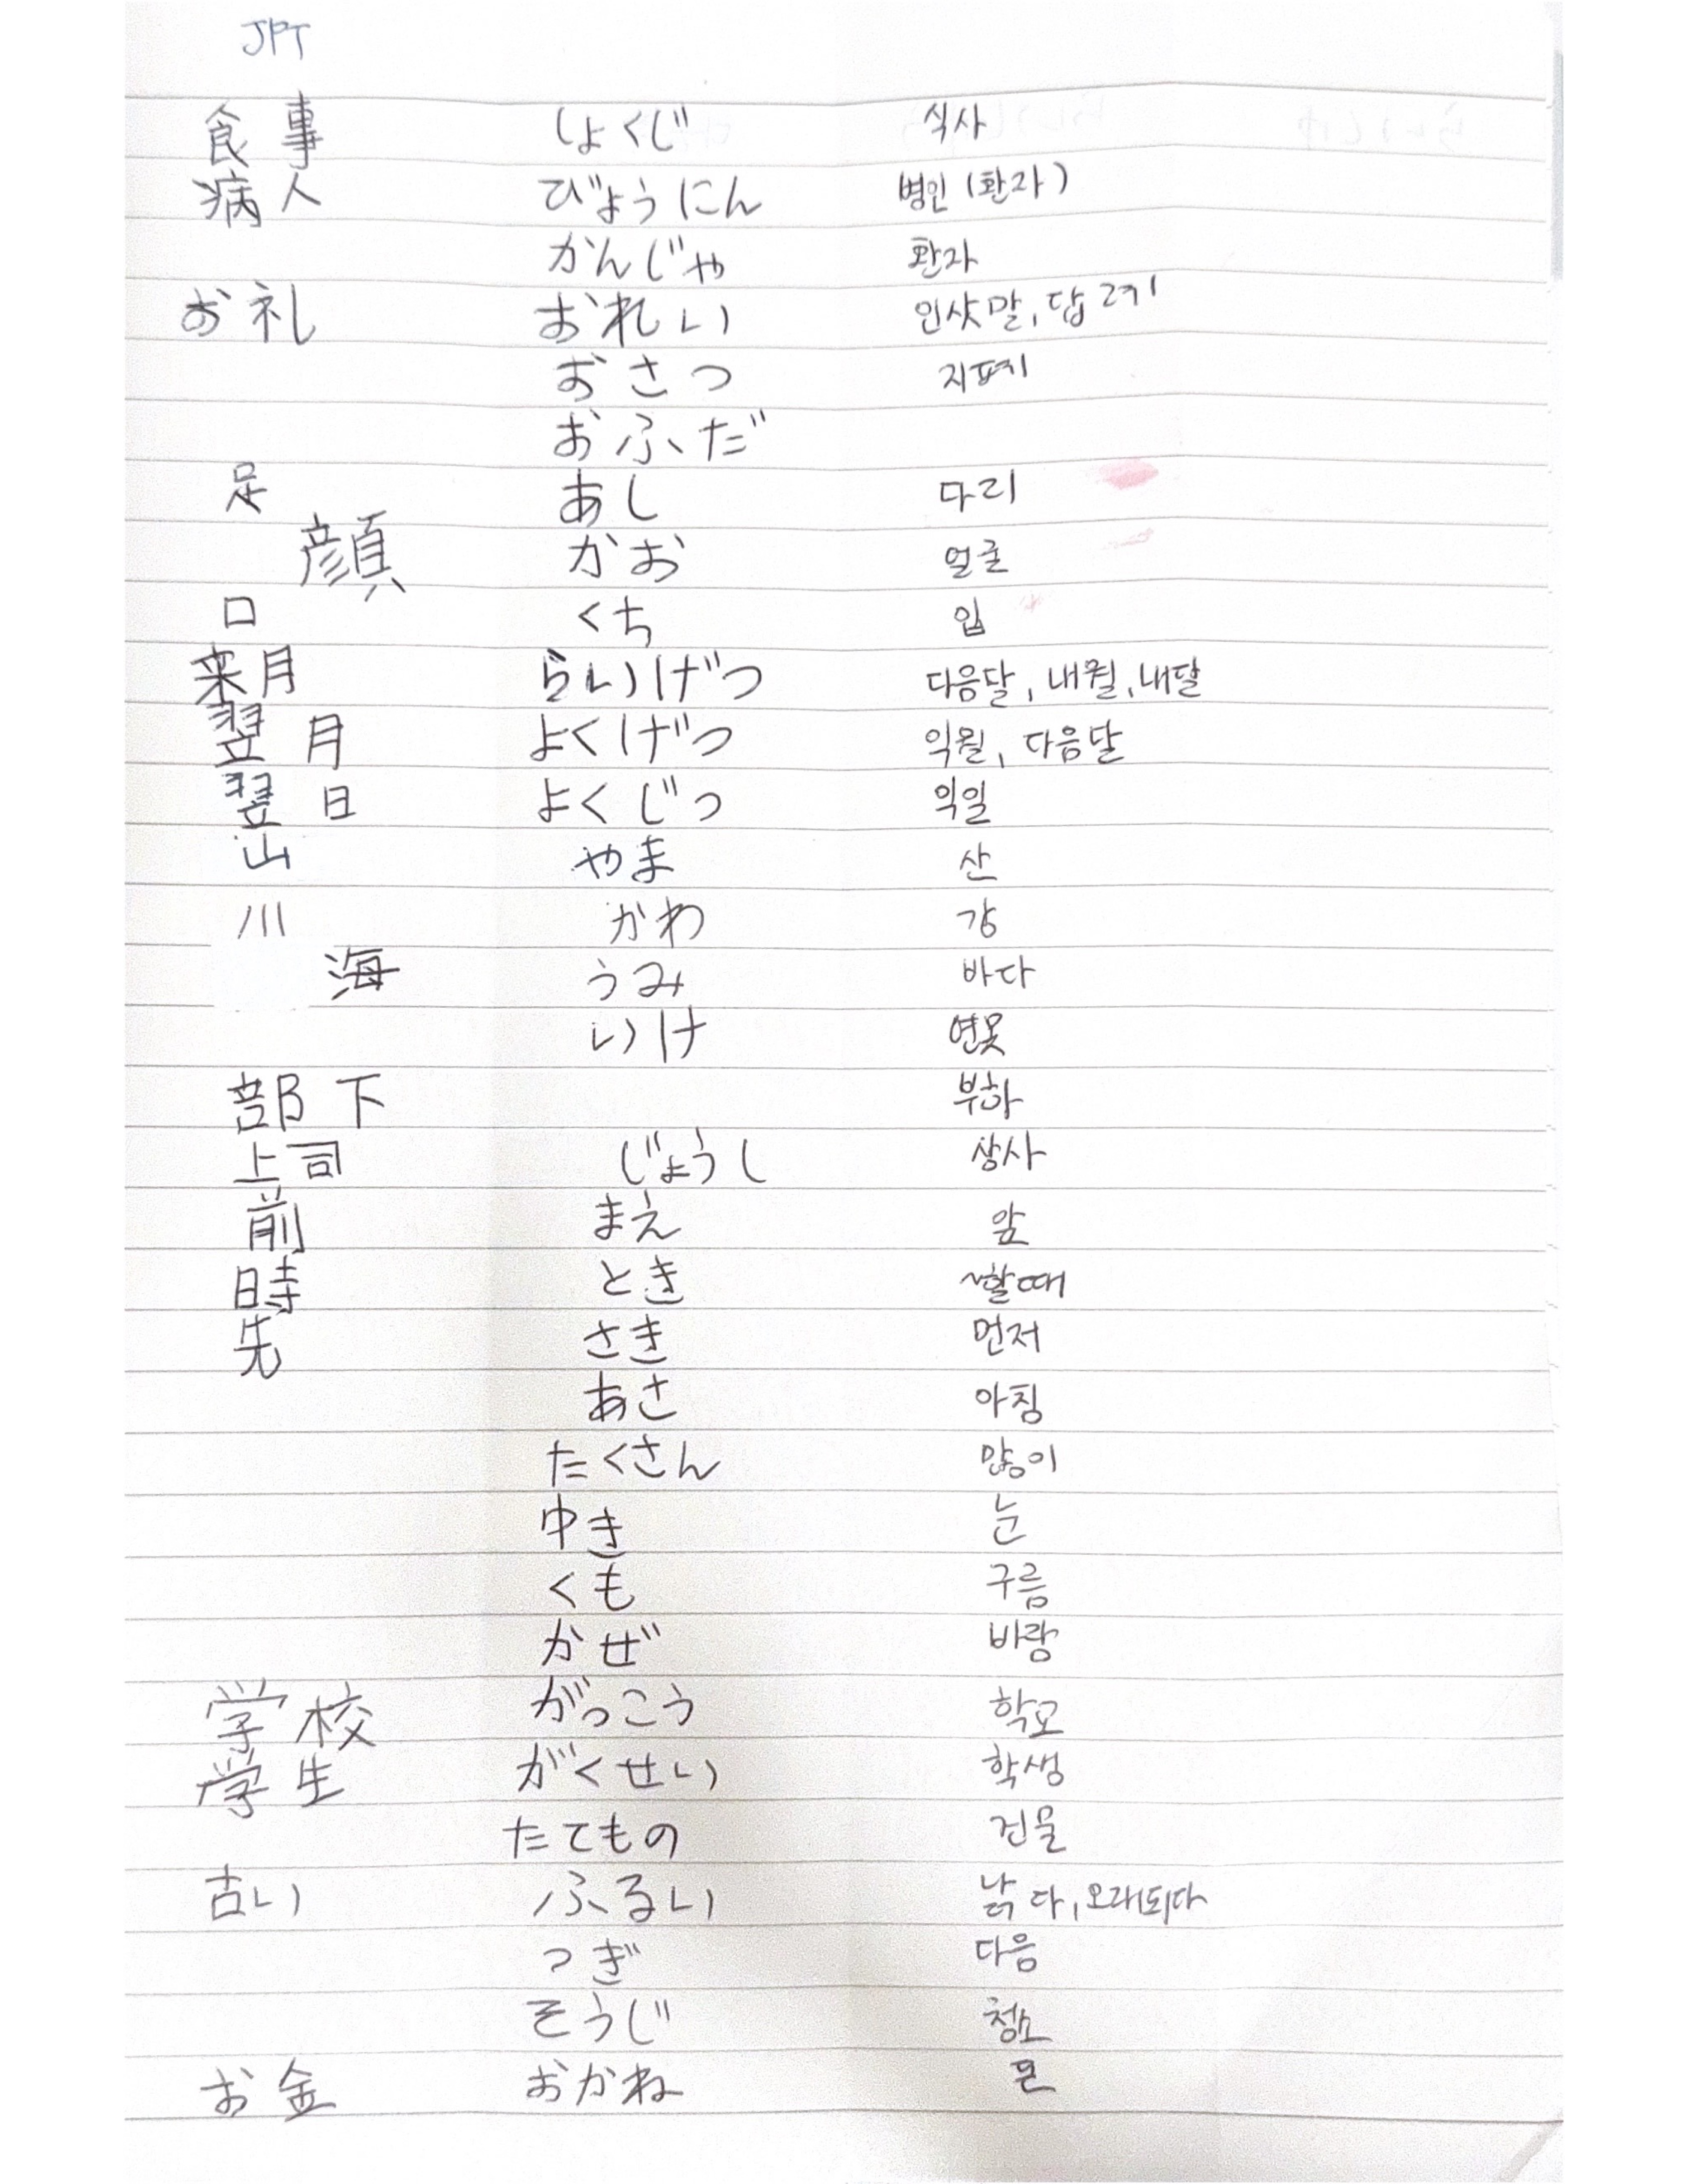 JPT
食事 しょくじ 식사
病人 びょうにん 병인 (환자)
かんじゃ 환자
お礼 おれい 인삿말, 답례
おさつ 지폐
おふだ
足 あし 다리
顔 かお 얼굴
口 くち 입
来月 らいげつ 다음달, 내월, 내달
翌月 よくげつ 익월, 다음달
翌日 よくじつ 익일
山 やま 산
川 かわ 강
海 うみ 바다
いけ 연못
部下 부하
上司 じょうし 상사
前 まえ 앞
時 とき ~할때
先 さき 먼저
あさ 아침
たくさん 많이
ゆき 눈
くも 구름
かぜ 바람
学校 がっこう 학교
学生 がくせい 학생
たてもの 건물
古い ふるい 낡다, 오래되다
つぎ 다음
そうじ 청소
お金 おかね 돈